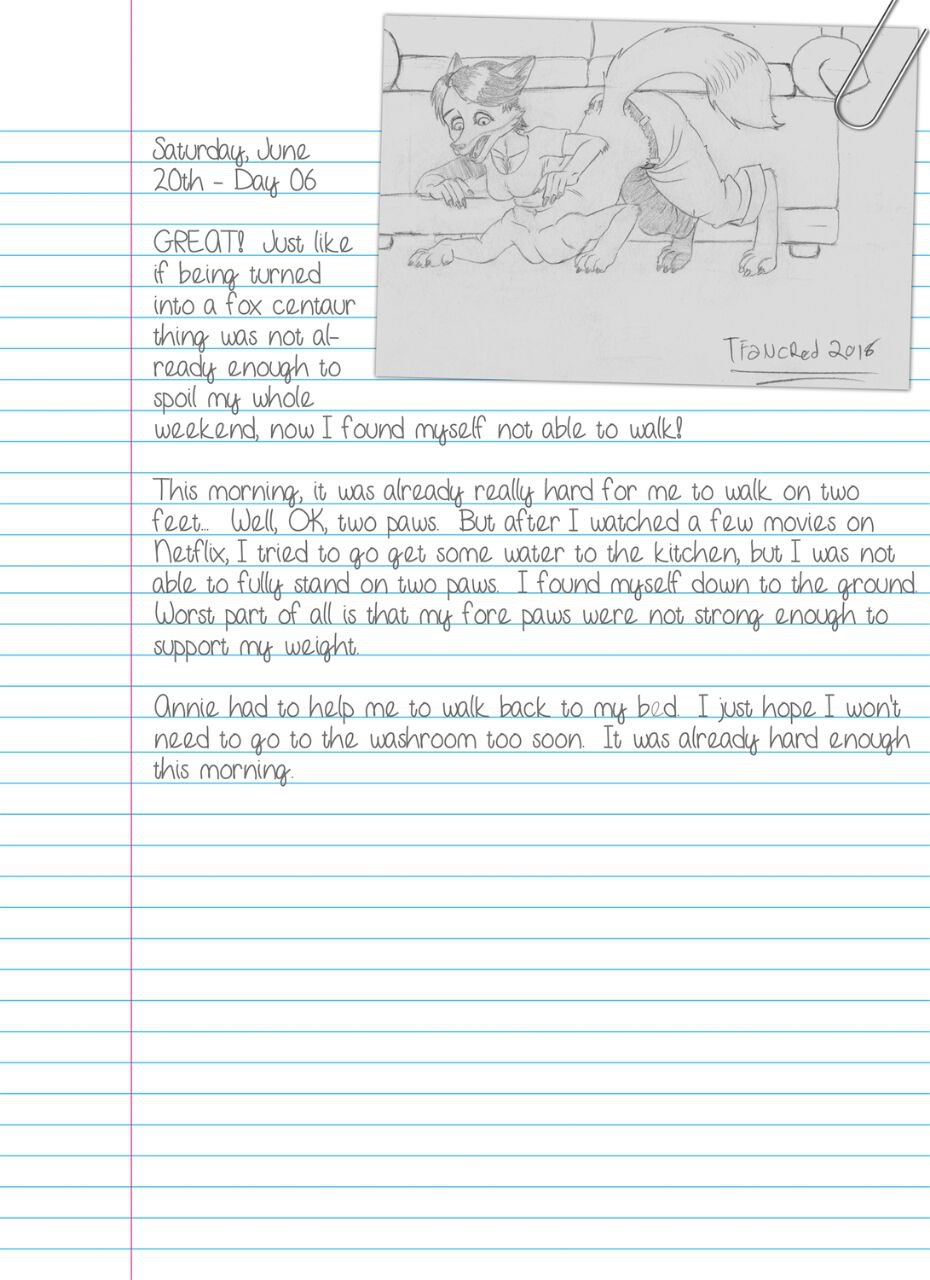 Saturday, June
20th - Day 06
GREAT! Just like
if being turned
into a fox centaur
thing was not al-
ready enough to
spoil my whole
weekend, now I found myself not able to walk!
This morning, it was already really hard for me to walk on two
feet... Well, OK, two paws. But after I watched a few movies on
Netflix, I tried to go get some water to the kitchen, but I was not
able to fully stand on two paws. I found myself down to the ground.
Worst part of all is that my fore paws were not strong enough to
support my weight.
Annie had to help me to walk back to my bed. I just hope I won't
need to go to the washroom too soon. It was already hard enough
this morning.
TFancRed 2016